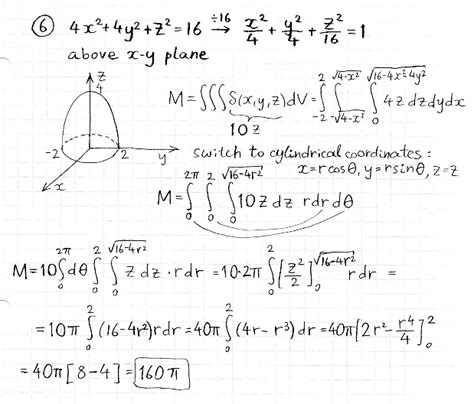 ⑥ 4x²+4y²+z²=16 ÷16→ x²/4 + y²/4 + z²/16 = 1
above x-y plane
z
4
-2 2 y
x
M = ∭ δ(x,y,z)dV = ∫_{-2}^{2} ∫_{-√(4-x²)}^{√(4-x²)} ∫_0^{√(16-4x²-4y²)} 4z dz dy dx
10z
switch to cylindrical coordinates:
x=rcosθ, y=rsinθ, z=z
M = ∫_0^{2π} ∫_0^2 ∫_0^{√(16-4r²)} 10z dz rdr dθ
M = 10 ∫_0^{2π} dθ ∫_0^2 ∫_0^{√(16-4r²)} z dz · r dr = 10·2π ∫_0^2 [z²/2]_0^{√(16-4r²)} r dr =
= 10π ∫_0^2 (16-4r²) r dr = 40π ∫_0^2 (4r - r³) dr = 40π [2r² - r⁴/4]_0^2
= 40π [8-4] = 160π